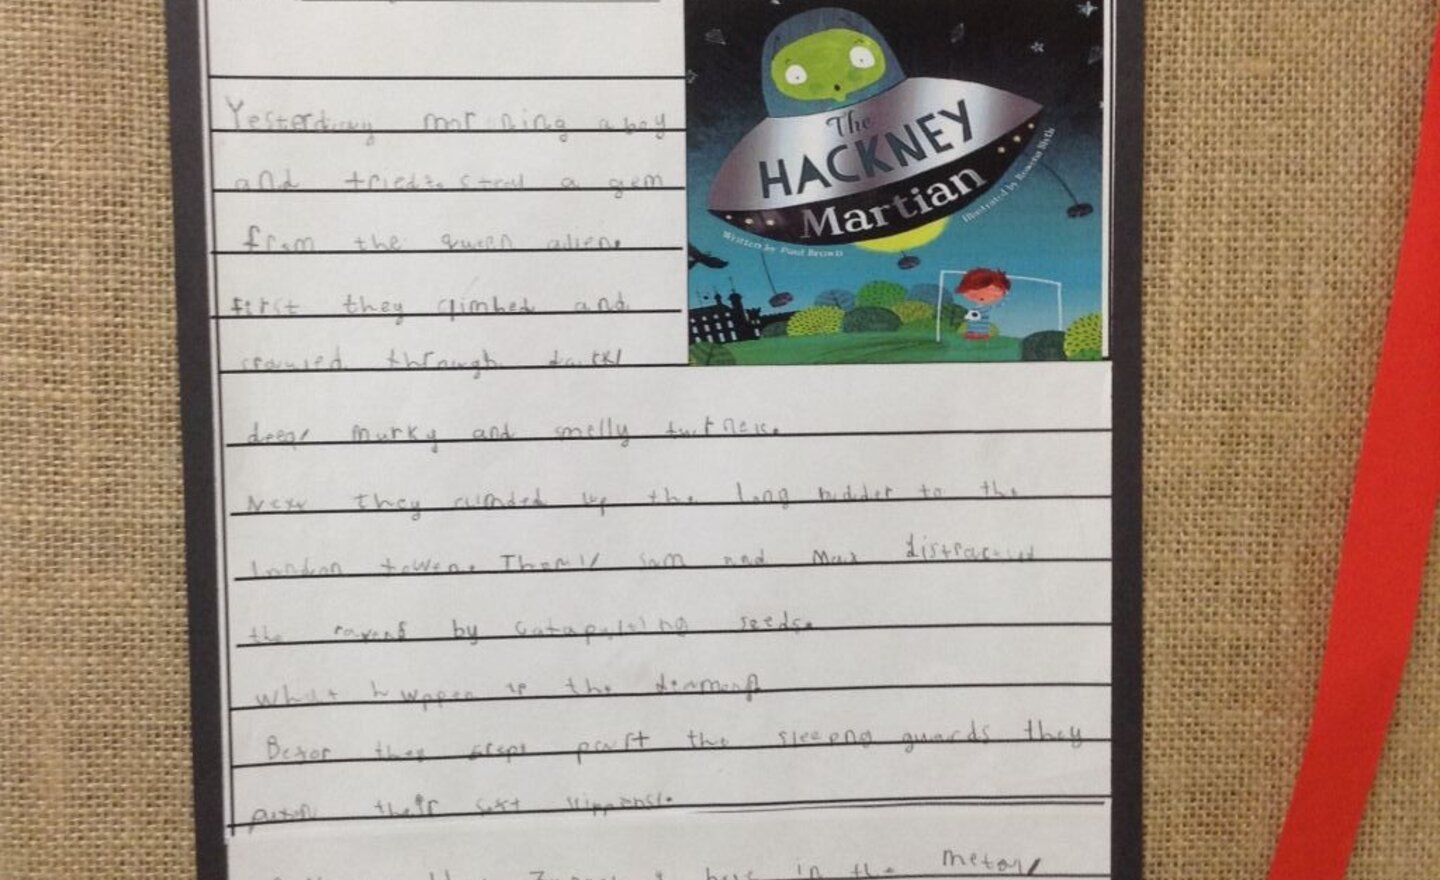 The
HACKNEY
Martian
Written by Paul Brown
Illustrated by Rowena Blyth
Yesterday mor ning a boy
and tried to steal a gem
from the queen alien.
first they climbed and
crawled through dark/
deep/ murky and smelly
Next they up the long to the
London tower. Then/ Sam and Max distracted
the ravens by catapulting seeds.
What happen to the
Befor they crept past the sleepng guards they
their soft
in the metal/